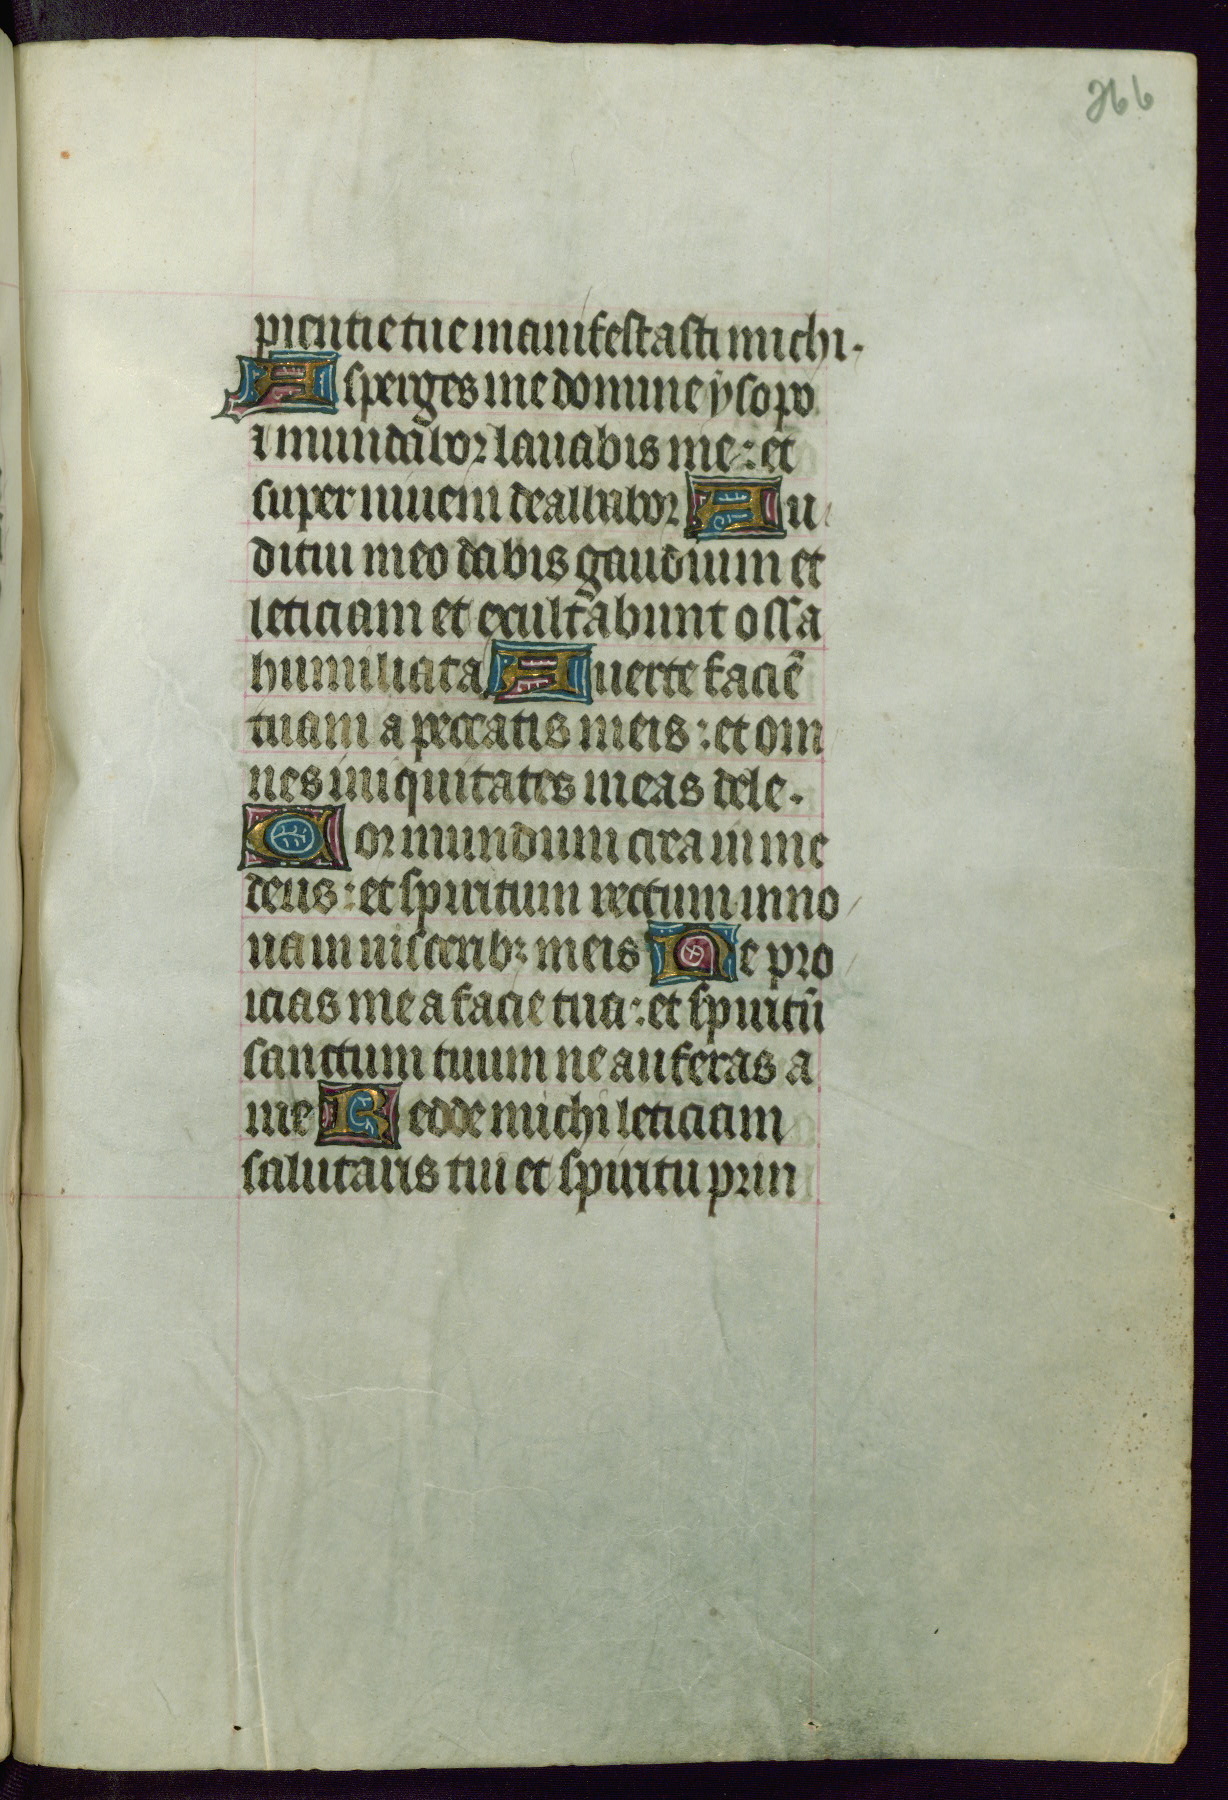 266
pientie tue manifestasti michi.
Asperges me domine ysopo
et mundabor lauabis me : et
super niuem dealbabor Au
ditui meo dabis gaudium et
leticiam et exultabunt ossa
humiliata Auerte faciē
tuam a peccatis meis : et om
nes iniquitates meas dele.
Cor mundum crea in me
deus : et spiritum rectum inno
ua in uisceribꝫ meis Ne pro
icias me a facie tua : et spiritū
sanctum tuum ne auferas a
me Redde michi leticiam
salutaris tui et spiritu prin